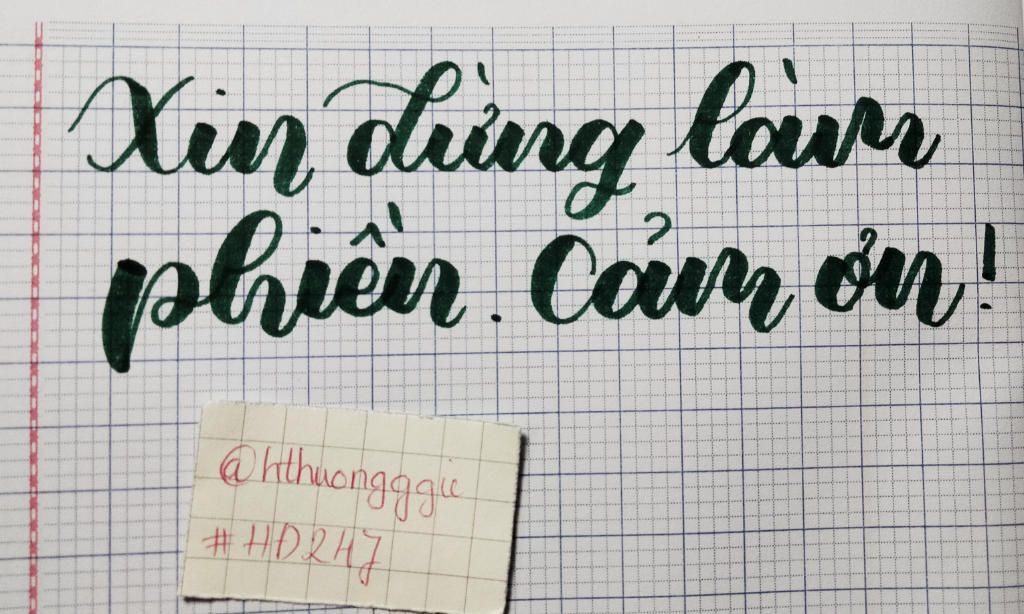 Xin dừng làm
phiền. Cảm ơn!
@hthuongggic
#HD2HJ